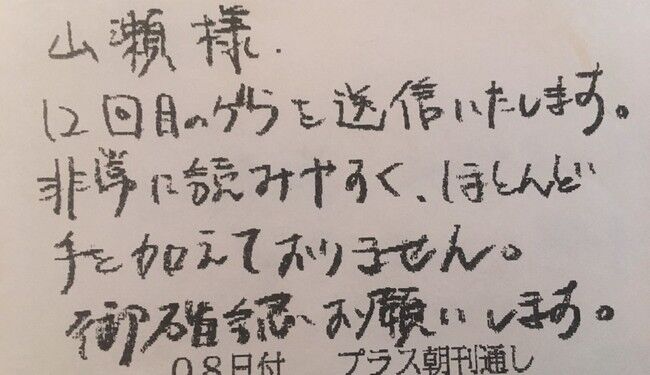 山瀬様.
12回目のゲラを送信いたします。
非常に読みやすく、ほとんど
手を加えておりません。
御確認お願いします。
08日付 プラス朝刊通し